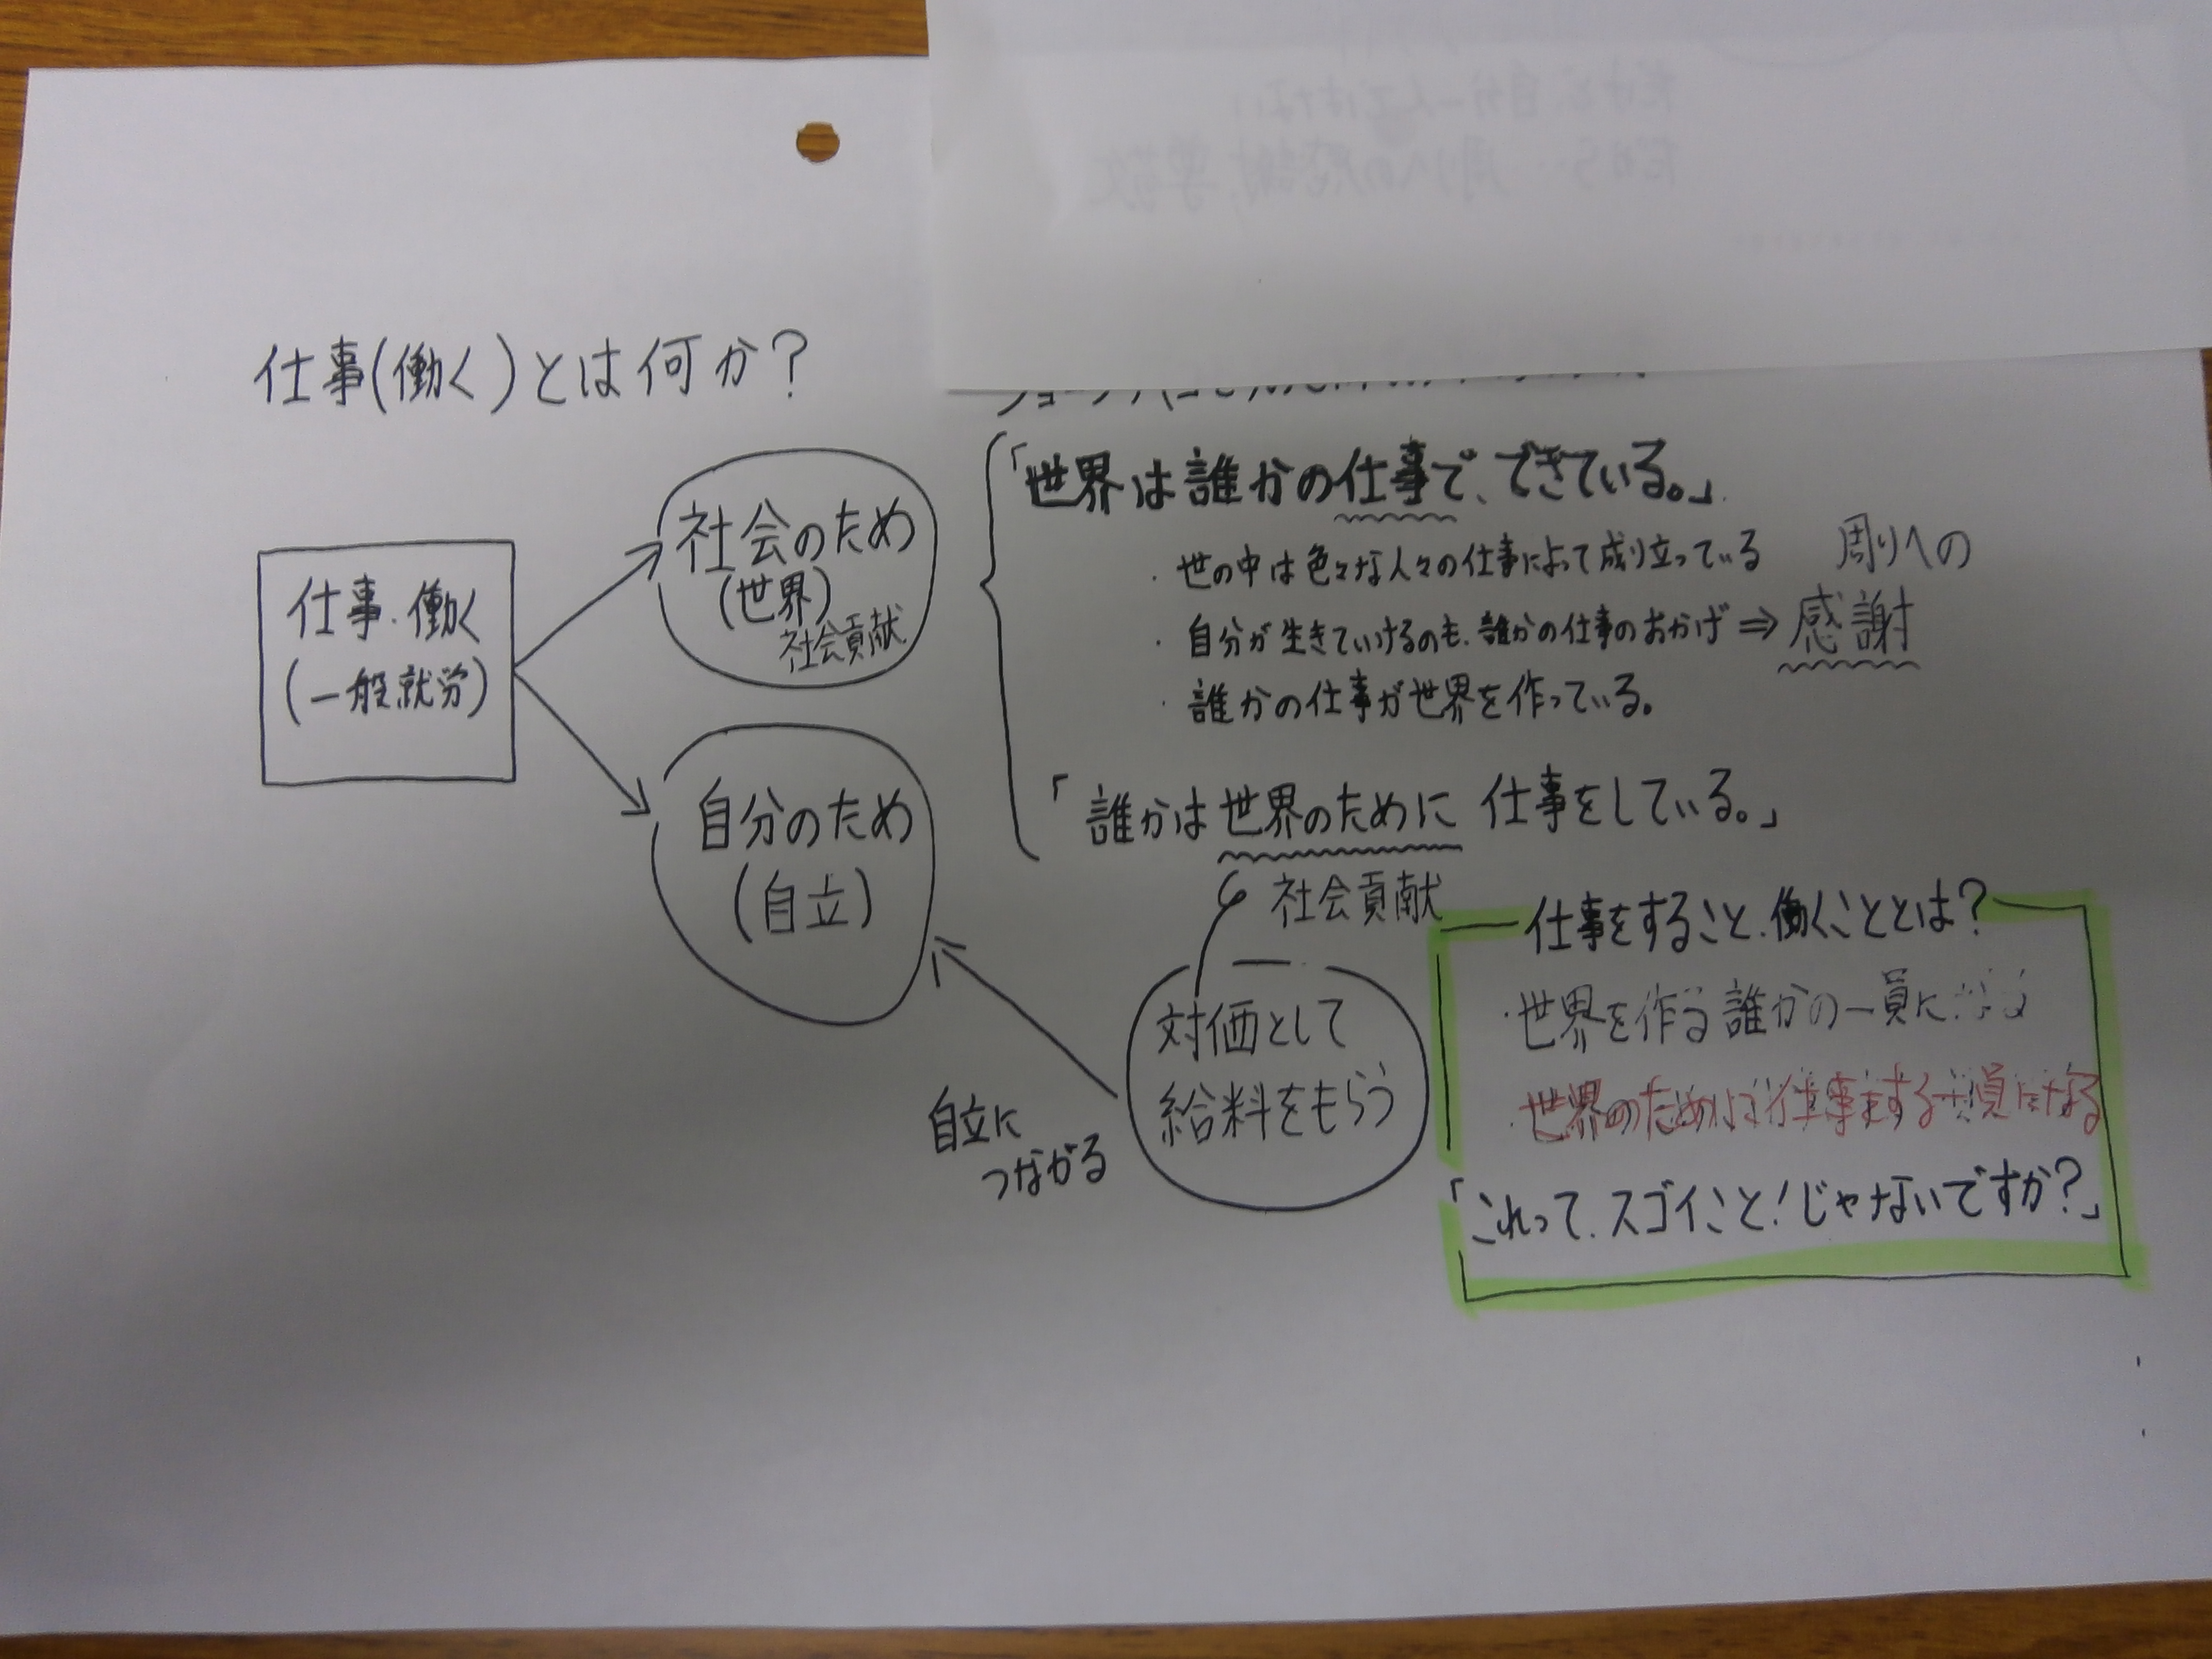 仕事(働く)とは何か?
仕事・働く
(一般就労)
社会のため
(世界)
社会貢献
自分のため
(自立)
「世界は誰かの仕事で、できている。」
・世の中は色々な人々の仕事によって成り立っている
・自分が生きていけるのも、誰かの仕事のおかげ⇒
周りへの
感謝
・誰かの仕事が世界を作っている。
「誰かは世界のために仕事をしている。」
社会貢献
対価として
給料をもらう
自立に
つながる
仕事をすること、働くこととは?
・世界を作る誰かの一員になる
・世界のために仕事をする一員になる
「これって、スゴイこと!じゃないですか?」
だけど、自分一人ではない
だから…周りへの感謝、尊敬